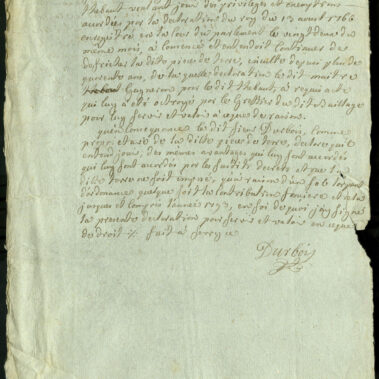 thebaut veut ans jouir du privileges et exemptions
accordés par la declaration du roy du 13 aoust 1766
enregistré en la cour du parlement le vingt deux du
même mois, a comencé et entendoit continuer de
deffricher la dite piece de terre, inculte depuis plus de
quarente ans, de laquelle declaration le dit maitre
Gagneron pour le dit thebaut, a requis acte
qui luy a été octroyé par le Greffier du dit Bailliage
pour luy servir et valoir a que de raison.
quen consequence le dit sieur Durbois, comme
proprietaire de la ditte piece de terre, declare qu'il
entend jouir, des memes avantages qui luy sont accordés
par les susdits decrets et que la
ditte terre ne soit imposé, qu'a raison d'un sol par
ordonnance quelque soit la contribution fonciere et a la
jusques et compris l'année 1793, en foi de quoi j'ay signé
la presente declaration pour servir et valoir ce que
de droit ./. fait a
Durbois